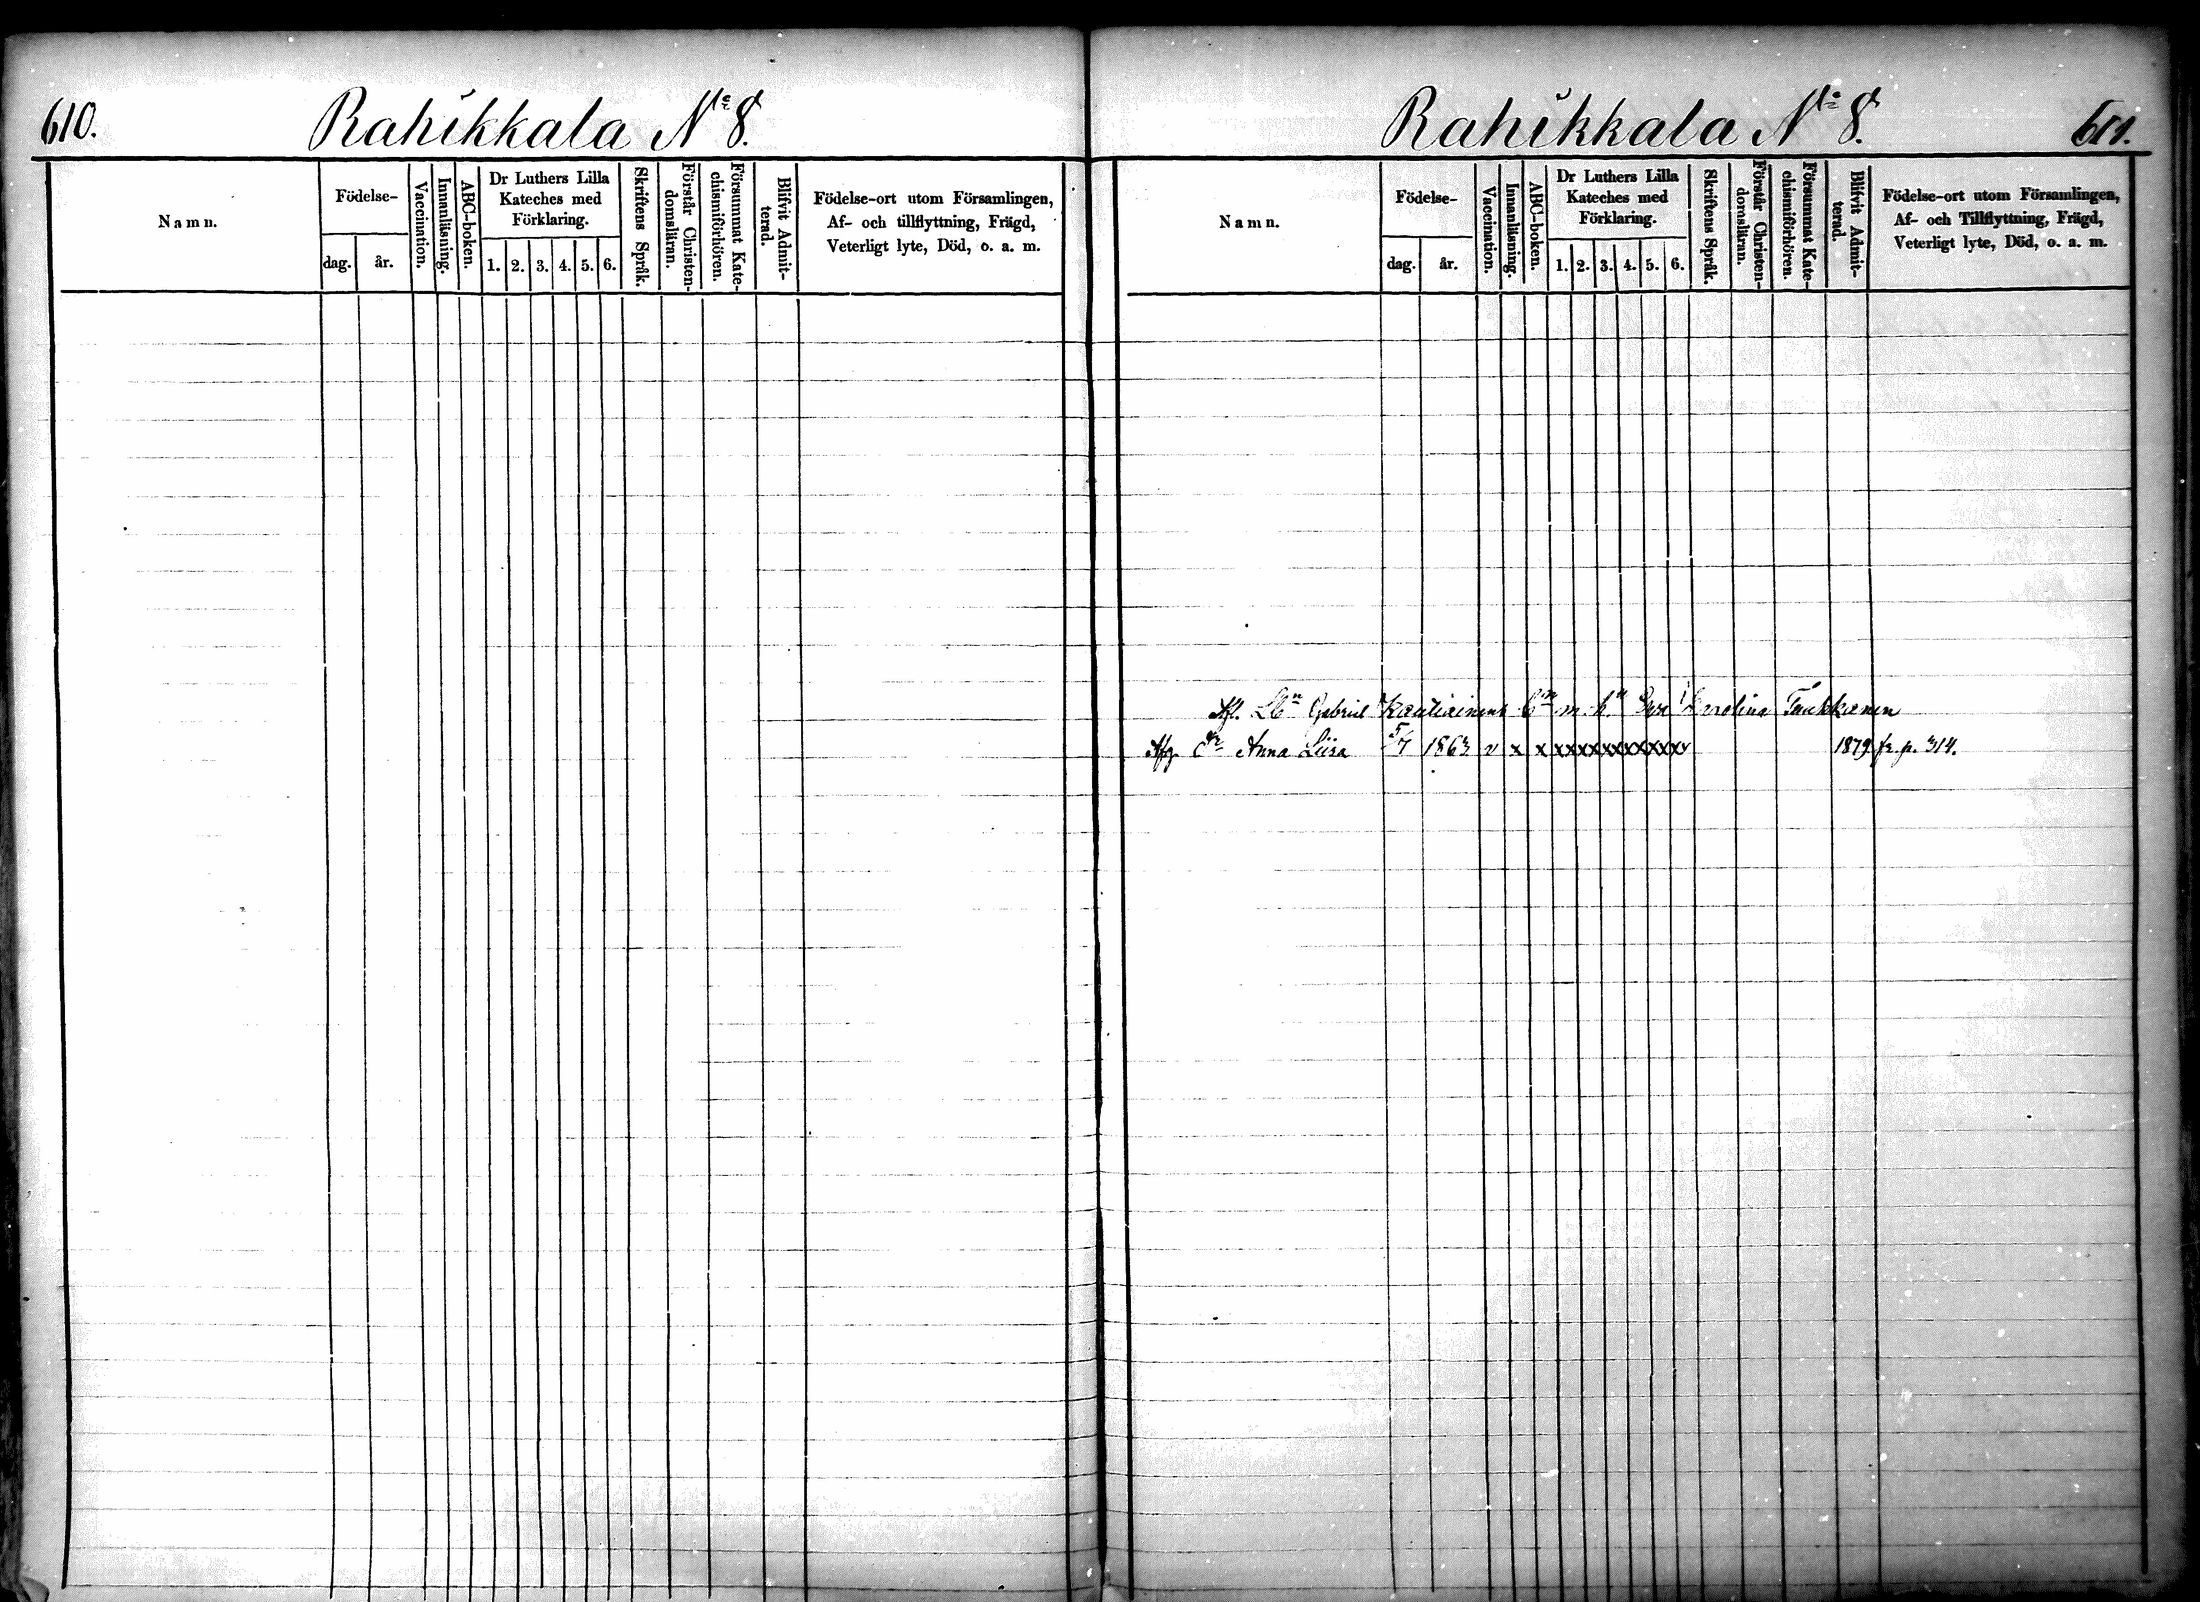 610. Rahikkala No 8.
Namn.
Födelse-
dag. år.
Vaccination.
Innanläsning.
ABC-boken.
Dr Luthers Lilla
Kateches med
Förklaring.
1. 2. 3. 4. 5. 6.
Skriftens Språk.
Förstår Christen-
domsläran.
Försummat Kate-
chismiförhören.
Blifvit Admit-
terad.
Födelse-ort utom Församlingen,
Af- och tillflyttning, Frägd,
Veterligt lyte, Död, o. a. m.
Rahikkala No 8. 611.
Namn.
Födelse-
dag. år.
Vaccination.
Innanläsning.
ABC-boken.
Dr Luthers Lilla
Kateches med
Förklaring.
1. 2. 3. 4. 5. 6.
Skriftens Språk.
Förstår Christen-
domsläran.
Försummat Kate-
chismiförhören.
Blifvit Admit-
terad.
Födelse-ort utom Församlingen,
Af- och Tillflyttning, Frägd,
Veterligt lyte, Död, o. a. m.
Afl. Gabriel m. h.
Anna Liisa 5/7 1863 v x x x x x x x x x x x x x x 1879 fr. p. 314.